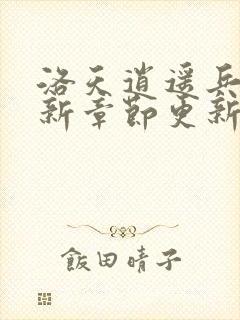 洛天逍遥兵
新章节更新
飯田晴子